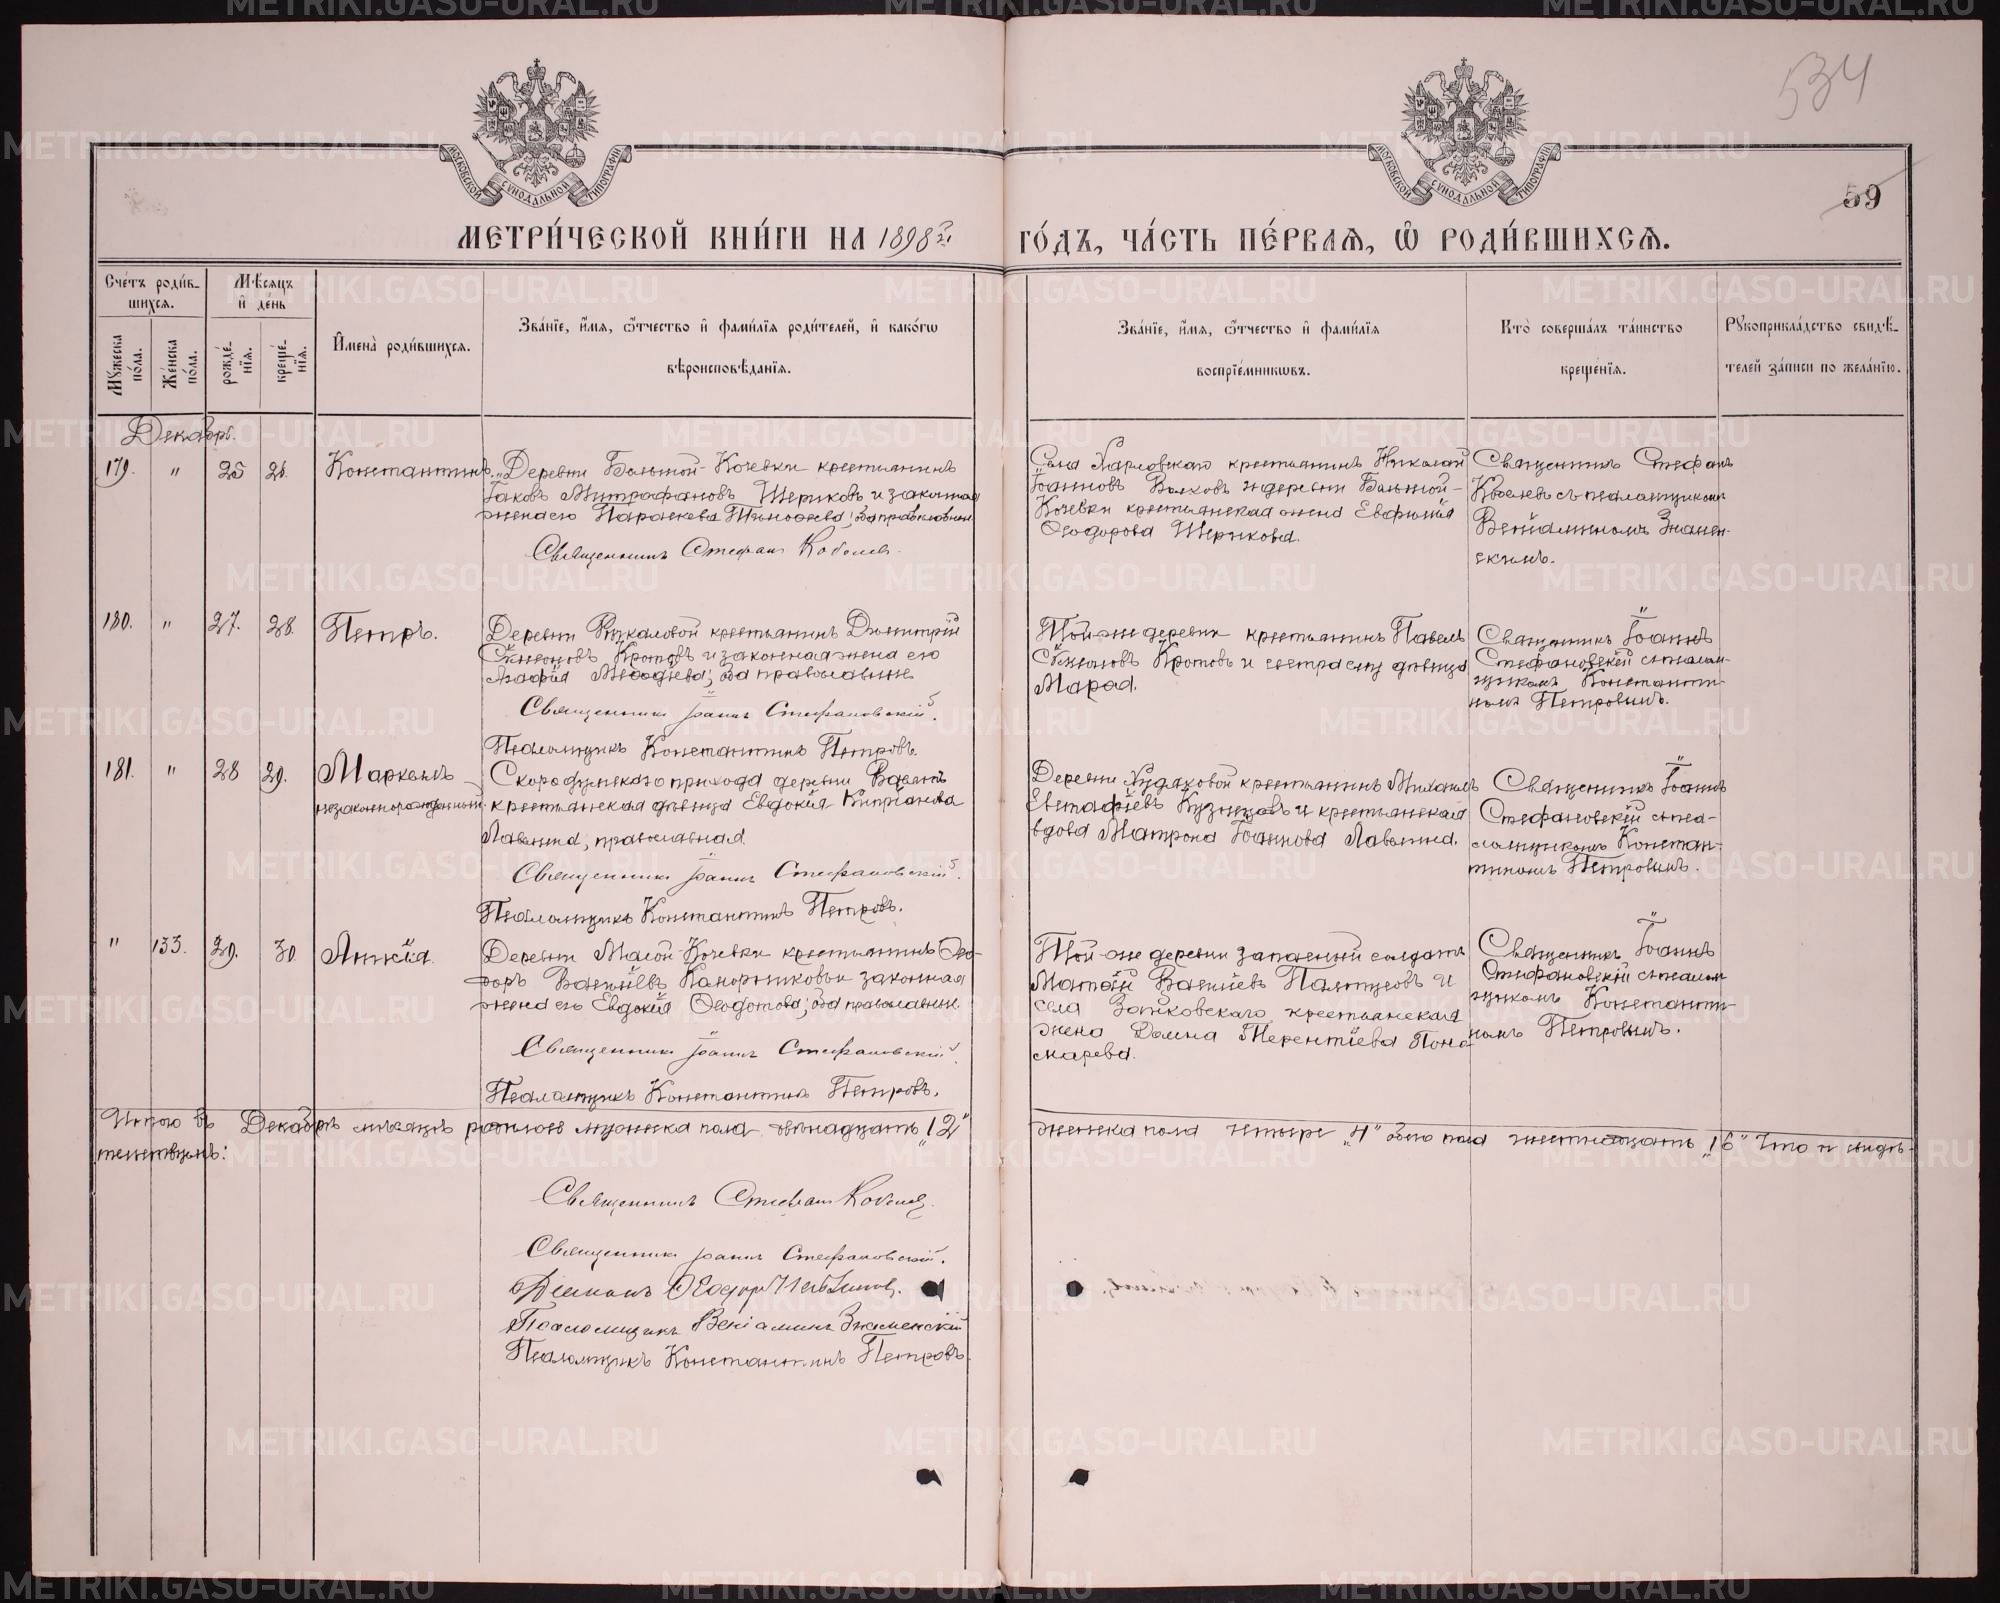 534
59
МОСКОВСКОЙ СѴНОДАЛЬНОЙ ТИПОГРАФІИ
МОСКОВСКОЙ СѴНОДАЛЬНОЙ ТИПОГРАФІИ
МЕТРИ́ЧЕСКОЙ КНИ́ГИ НА 1898й ГО́ДЪ, ЧА́СТЬ ПЕ́РВАЯ, Ѡ РОДИ́ВШИХСЯ.
Сче́тъ роди́в-
шихся.
Мѣ́сяцъ
и҆ де́нь
Мꙋ́жеска по́ла.
Же́нска по́ла.
рожде́нїя.
креще́нїя.
И҆мена̀ роди́вшихся.
Зва́нїе, и҆́мя, ѻ҆́тчество и҆ фами́лїя роди́телей, и҆ како́гѡ
вѣроисповѣ́данїя.
Зва́нїе, и҆́мя, ѻ҆́тчество и҆ фами́лїя
воспрїе́мникѡвъ.
Кто̀ соверша́лъ та́инство
креще́нїя.
Рꙋкоприкла́дство свидѣ́-
телей за́писи по жела́нїю.
Декабрь.
179. " 25 26. Константинъ.
Деревни Большой-Кочевки крестьянинъ
Іаковъ Митрофановъ Шериковъ и законная
жена его Параскева Тимофеева; оба православные.
Священникъ Стефанъ Коболев.
Села Харловскаго крестьянинъ Николай
Іоанновъ Волковъ и деревни Большой-
Кочевки крестьянская жена Евфимія
Ѳеодорова Шерикова.
Священникъ Стефанъ
Коболевъ съ псаломщикомъ
Веніаминомъ Знамен-
скимъ.
180. " 27. 28. Петръ.
Деревни крестьянинъ Димитрій
Симеоновъ Кротовъ и законная жена его
Агафія Меѳодіева; оба православные
Священникъ Іоаннъ Стефановскій.
Псаломщикъ Константинъ Петровъ
Той-же деревни крестьянинъ Павелъ
Симеоновъ Кротовъ и сестра ему девица
Марѳа.
Священникъ Іоаннъ
Стефановскій съ псалом-
щикомъ Константи-
номъ Петровымъ.
181. " 28 29. Маркеллъ
незаконнорожденный.
Скородумскаго прихода деревни
крестьянская дѣвица Евдокія Кипріанова
Лавелина, православная.
Священникъ Іоаннъ Стефановскій.
Псаломщикъ Константинъ Петровъ.
Деревни Худяковой крестьянинъ Михаилъ
Евстафіевъ Кузнецовъ и крестьянская
вдова Матрона Іоаннова Лавелина.
Священникъ Іоаннъ
Стефановскій съ пса-
ломщикомъ Констан-
тиномъ Петровымъ.
" 133. 29. 30. Анисія.
Деревни Малой-Кочевки крестьянинъ Ѳео-
доръ и законная
жена его Евдокія Ѳеодотова; оба православные.
Священникъ Іоаннъ Стефановскій.
Псаломщикъ Константинъ Петровъ.
Той-же деревни запасный солдатъ
Матѳій и
села Зайковскаго крестьянская
жена Домна Терентіева Поно-
марева.
Священникъ Іоаннъ
Стефановскій съ псалом-
щикомъ Константи-
номъ Петровымъ.
Итого въ Декабрѣ мѣсяцѣ родилось мужеска пола двѣнадцать "12" женска пола четыре "4" обоего пола шестнадцать "16" Что и свидѣ-
тельствуемъ:
Священникъ Стефанъ Коболев.
Священникъ Іоаннъ Стефановскій.
Діаконъ Ѳеодоръ
Псаломщикъ Веніаминъ Знаменскій
Псаломщикъ Константинъ Петровъ.
METRIKI.GASO-URAL.RU